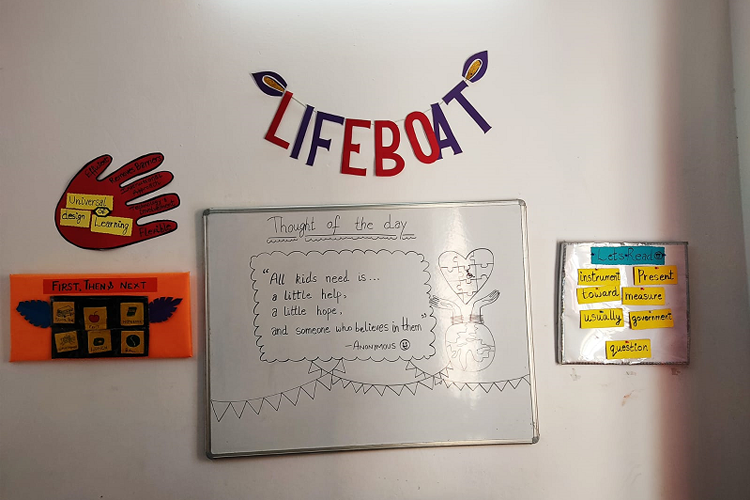 LIFEBOAT
Universal
design OF Learning
Flexible
FIRST, THEN & NEXT
Thought of the day
"All kids need is...
a little help,
a little hope,
and someone who believes in them"
- ANONYMOUS
Let's Read
instrument Present
toward measure
usually government
question